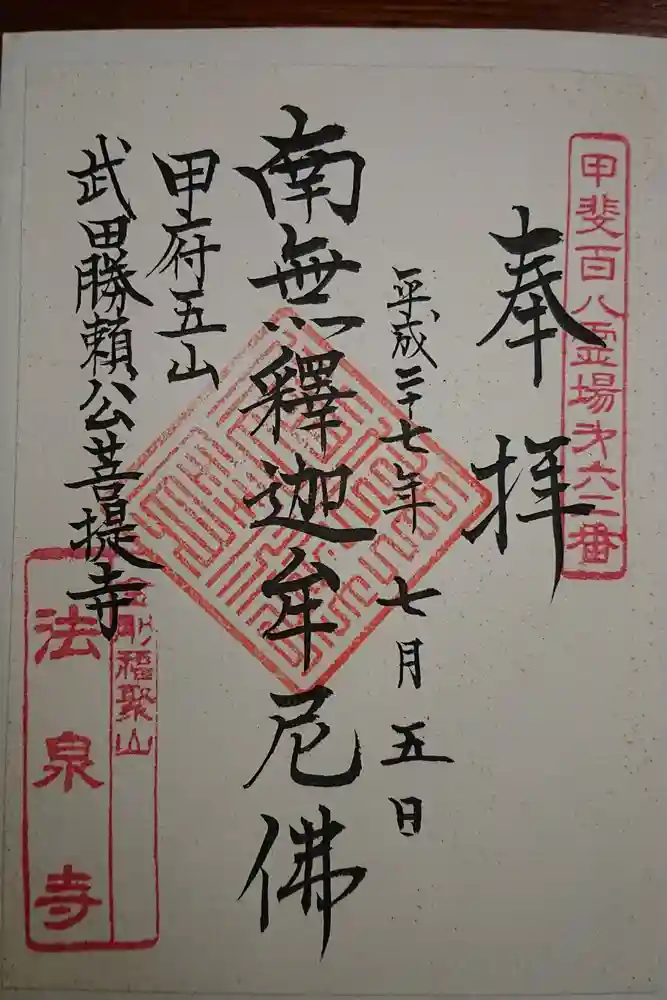 甲斐百八霊場才六二番
奉拝
平成二十七年七月五日
南無釋迦牟尼佛
甲府五山
武田勝頼公菩提寺
金剛福聚山
法泉寺